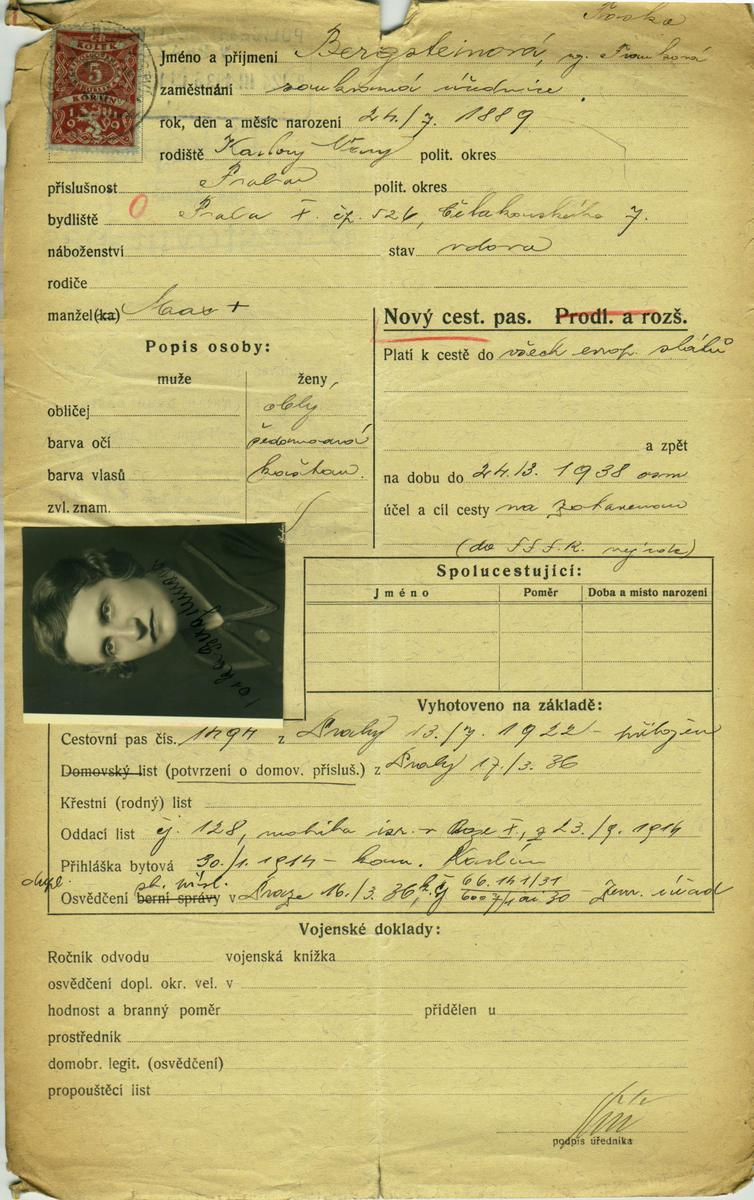 ČR
KOLEK
5
KORUN
1919
Jméno a příjmení Bergsteinová,
zaměstnání soukromá úřednice
rok, den a měsíc narození 24./7. 1889
rodiště Karlovy Vary polit. okres
příslušnost Praha polit. okres
bydliště Praha X. čp. 526, Čelakovského 7.
0
náboženství stav vdova
rodiče
manžel(ka) Max +
Nový cest. pas. Prodl. a rozš.
Popis osoby:
Platí k cestě do všech evrop. států
muže ženy
obličej oblý
barva očí šedomodrá
a zpět
barva vlasů kaštan.
na dobu do 24./3. 1938
zvl. znam.
účel a cíl cesty na zotavenou
(do SSSR. )
Spolucestující:
Jméno Poměr Doba a místo narození
Vyhotoveno na základě:
Cestovní pas čís. 1494 z Prahy 13./7. 1922 – přiložen
Domovský list (potvrzení o domov. přísluš.) z Prahy 17./3. 36
Křestní (rodný) list
Oddací list čj. 128, matrika isr. v Praze X, z 23./9. 1914
Přihláška bytová 30./1. 1914 – kom. Karlín
dupl.
Osvědčení berní správy v Praze 16./3. 36, čj. 66.141/31 Zem. úřad
Vojenské doklady:
Ročník odvodu vojenská knížka
osvědčení dopl. okr. vel. v
hodnost a branný poměr přidělen u
prostředník
domobr. legit. (osvědčení)
propouštěcí list
podpis úředníka